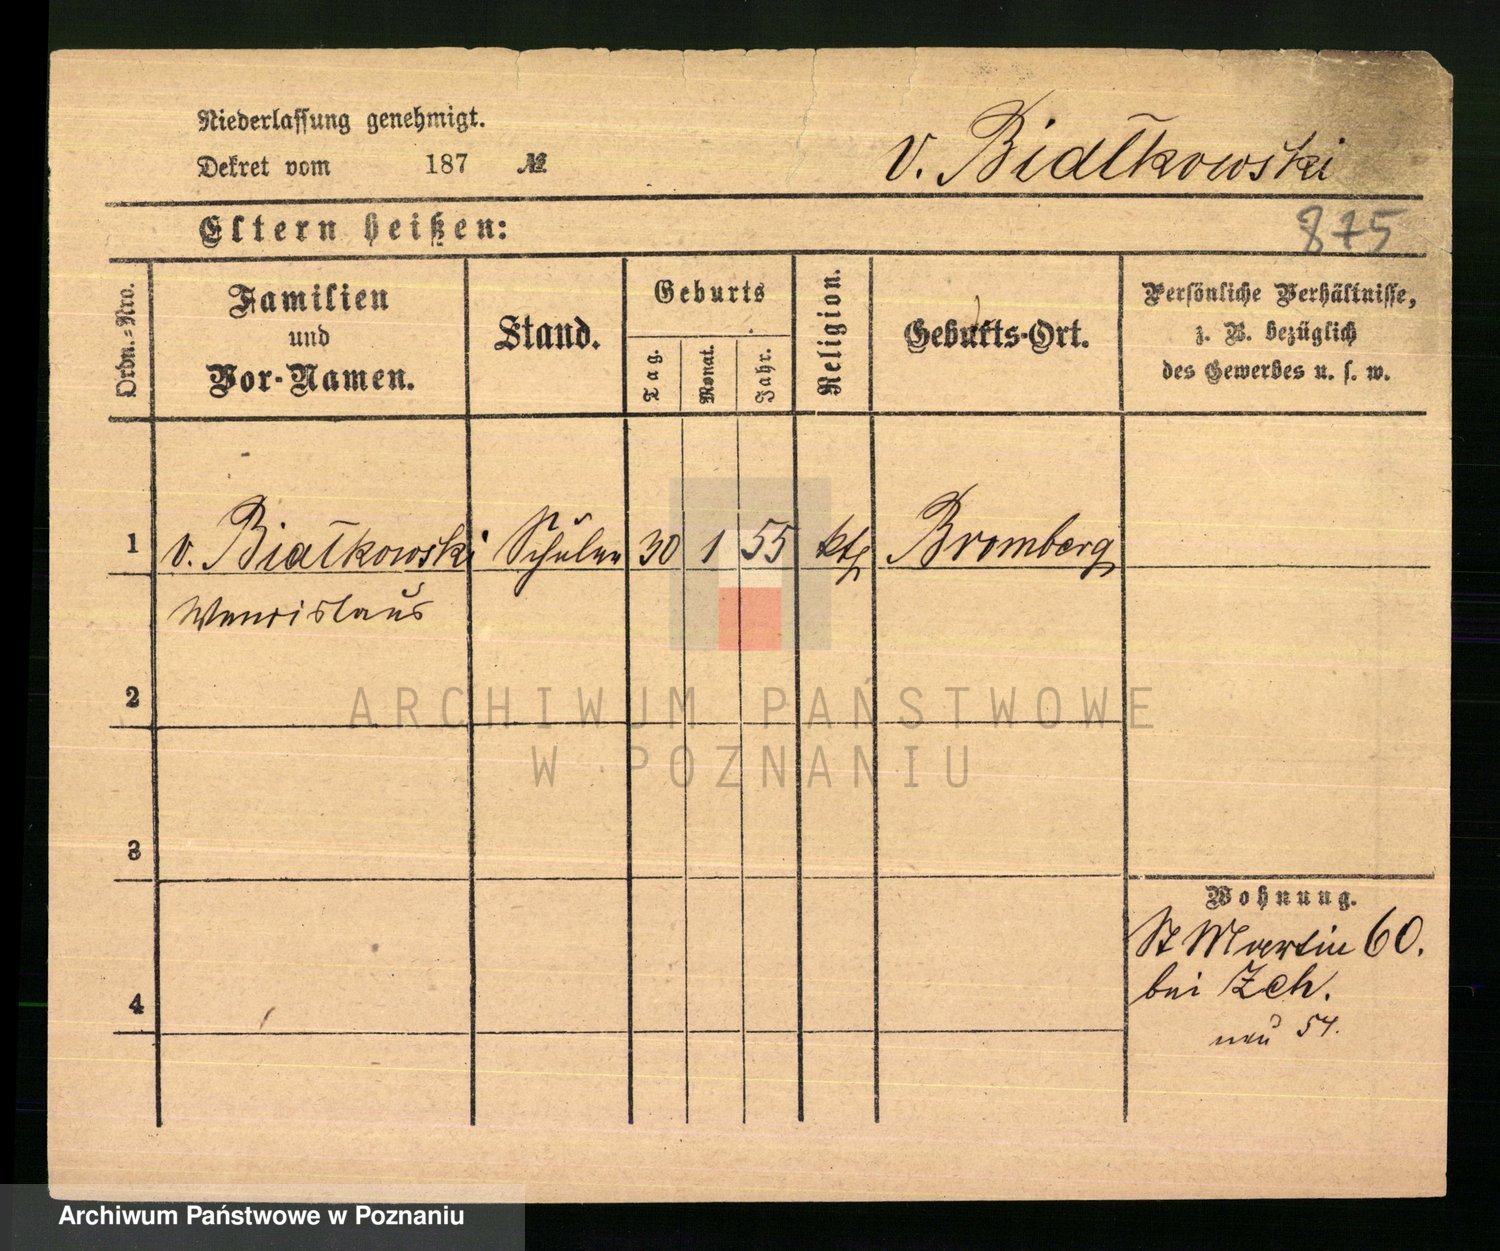 Niederlassung genehmigt.
Dekret vom 187 №
v. Białkowski
Eltern heißen:
875
Ordn.-Nro.
Familien
und
Vor-Namen.
Stand.
Geburts
Tag.
Monat.
Jahr.
Religion.
Geburts-Ort.
Persönliche Verhältnisse,
z. B. bezüglich
des Gewerbes u. s. w.
1 v. Białkowski Schüler 30 1 55 ktg Bromberg
2
3
4
Wohnung.
St Martin 60.
bei Zch.
neu 54.
ARCHIWUM PAŃSTWOWE
W POZNANIU
Archiwum Państwowe w Poznaniu